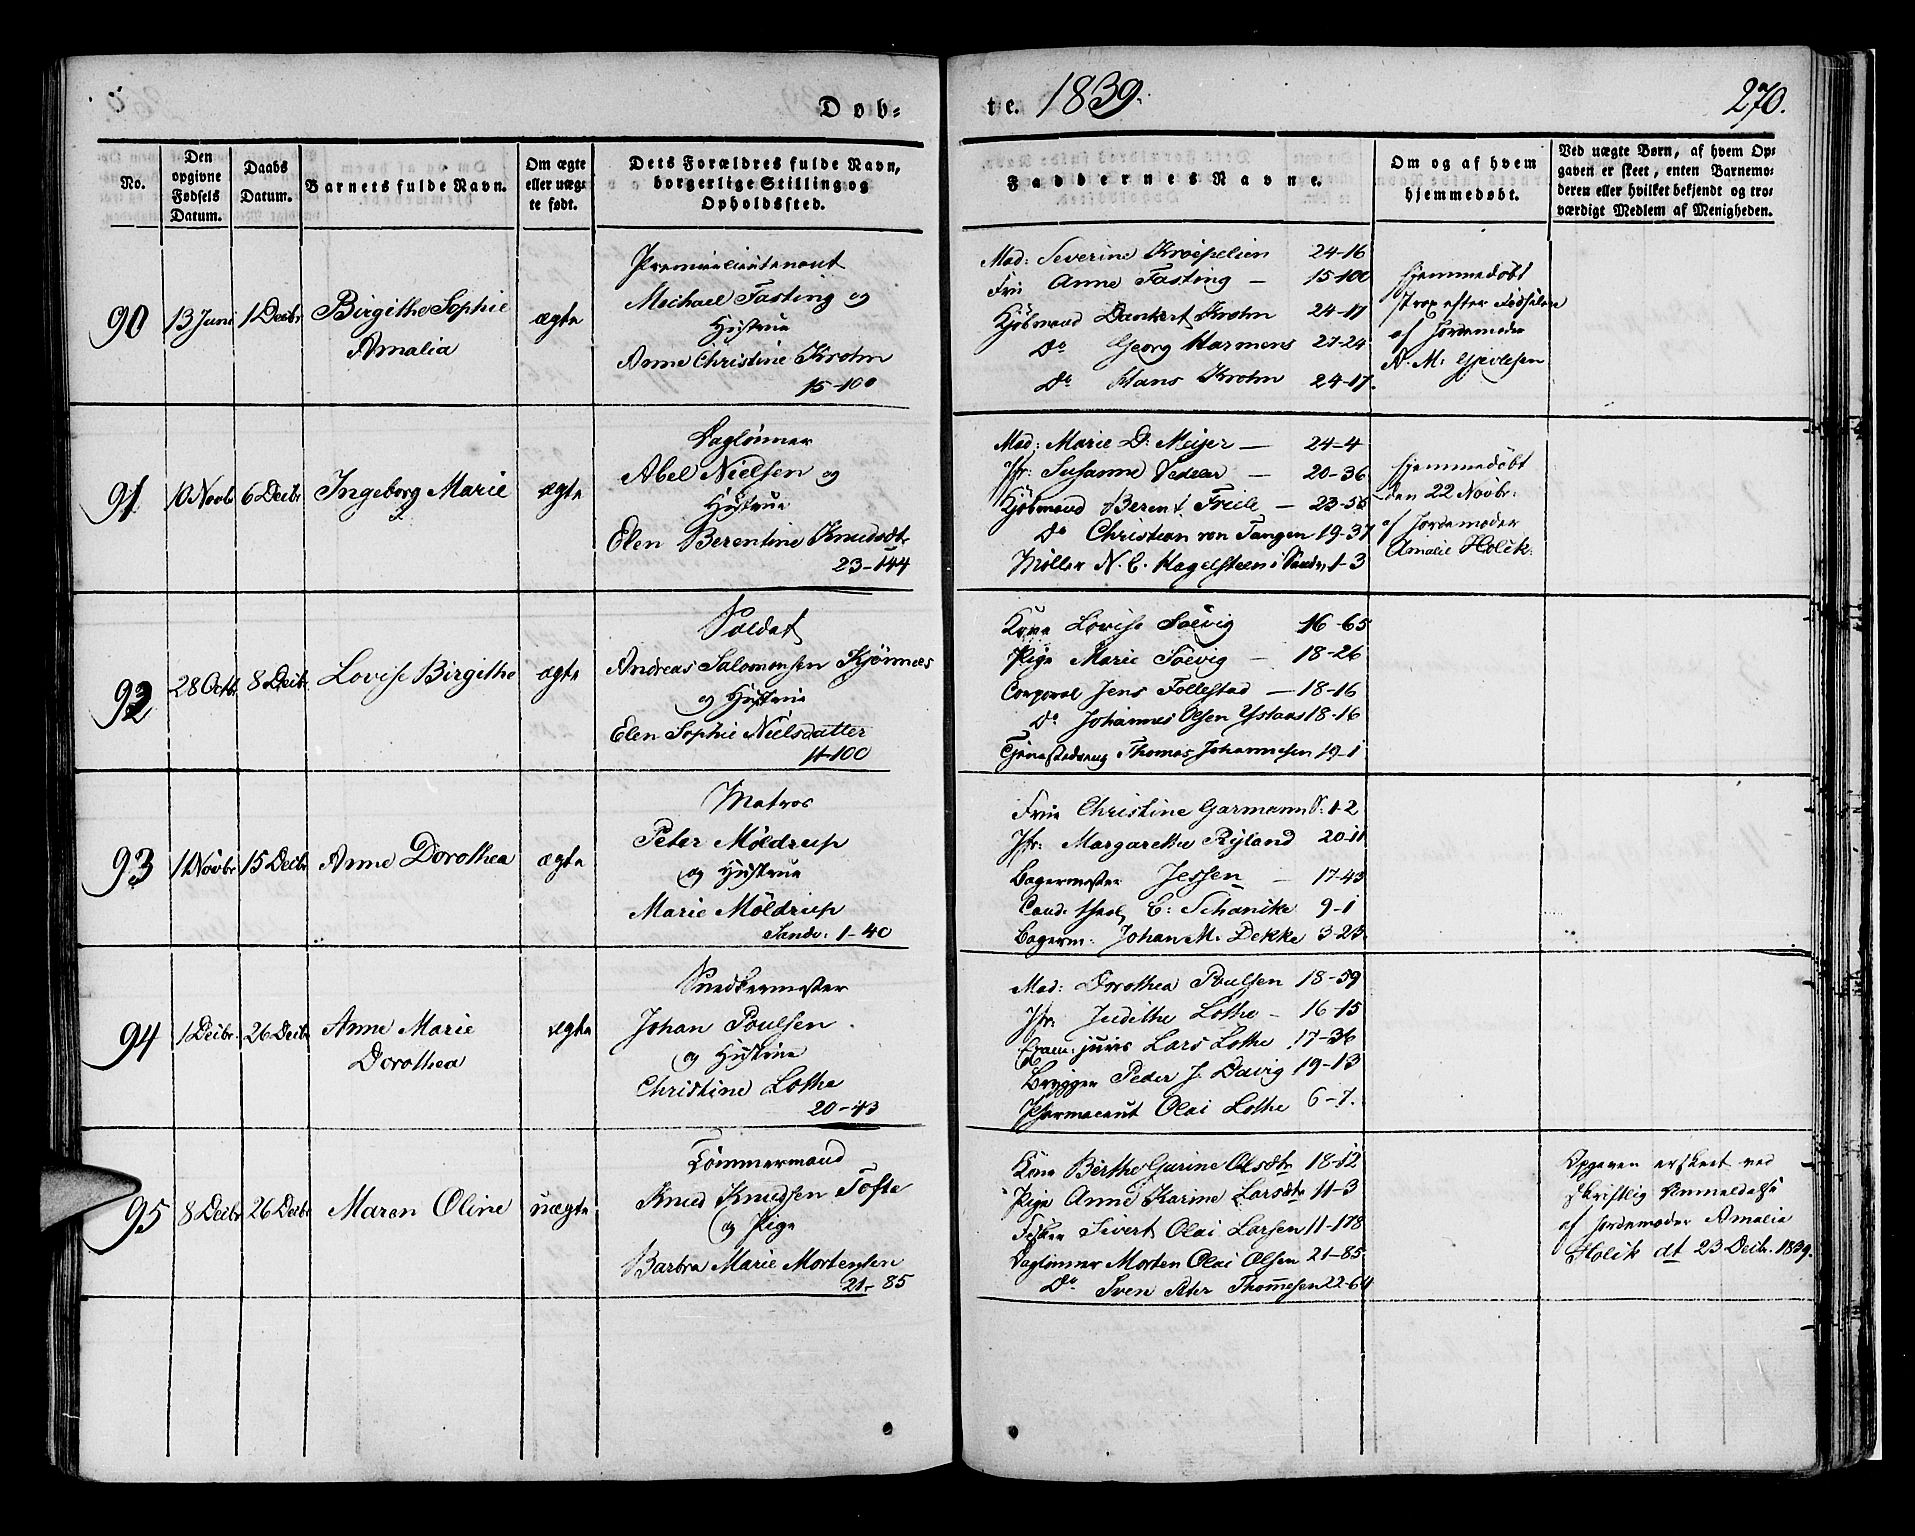 Døb=
te. 1839.
270.
No.
Den opgivne Fødsels Datum.
Daabs Datum.
Barnets fulde Navn.
Om ægte eller uægte født.
Dets Forældres fulde Navn, borgerlige Stilling og Opholdssted.
Faddernes Navne.
Om og af hvem hjemmedøbt.
Ved uægte Børn, af hvem Opgaven er skeet, enten Barnemoderen eller hvilket bekjendt og troværdigt Medlem af Menigheden.
90
13 Juni
1 Decbr
Birgithe Sophie
Amalia
ægte
Premierlieutenant
Michael Fasting og
Hustrue
Anne Christine Krohn
15-100
Mad: Severine Kroepelien 24-16
Frü Anne Fasting — 15-100
Kjöbmand Dankert Krohn 24-17
Do Georg Harmens 27-24
Do Hans Krohn 24-17.
Hjemmedøbt
strax efter Fødselen
af Jordemoder
N. M.
91
10 Novbr
6 Decbr
Ingeborg Marie
ægte
Daglönner
Abel Nielsen og
Hustrue
Elen Berentine Knudsdtr
23-144
Mad: Marie D. Meijer — 24-4
Jfr: Susanne Vedeler — 20-36
Kjöbmand Berent Friele — 23-56
Do Christian von Tangen 19-37
Möller N. C. Hagelsteen i Sandv. 1-3
Hjemmedøbt
den 22 Novbr:
af Jordemoder
Amalie Holck.
92
28 Octbr
8 Decbr.
Lovise Birgithe
ægte
Soldat
Andreas Salomonsen Kjönnes
og Hustrue
Elen Sophie Nielsdatter
11-100
Kone Lovise Soevig 16-65
Pige Marie Soevig — 18-26
Corporal Jens Follestad — 18-16
Do Johannes Olsen Ystaas 18-16
Tjenestedreng Thomas Johannesen 19-1
93
1 Novbr
15 Decbr
Anne Dorothea
ægte
Matros
Peter Möldrup
og Hustrue
Marie Möldrup
Sandv: 1-40
Frue Christine Garmann S. 1-2
Jfr: Margarethe Ryland 20-11
Bagermester Jessen — 17-43
Cand. theol. C: Schanike 9-1
Bagerm: Johan M. Dekke 3-23.
94
1 Decbr.
26 Decbr
Anne Marie
Dorothea
ægte
Snedkermester
Johan Poulsen
og Hustrue
Christine Lothe
20-43
Mad: Dorothea Poulsen 18-59
Jfr. Judithe Lothe — 16-15
Exam: juris Lars Lothe 17-36
Brygger Peder J. Davig 19-13
Pharmaceut Olai Lothe 6-7.
95
8 Decbr
26 Decbr
Maren Oline
uægte
Tömmermand
Knud Knudsen Tofte
og Pige
Barbra Marie Mortensen
21-85
Kone Berthe Gurine Olsdtr 18-12
Pige Anne Karine Larsdtr 11-3
Fisker Sivert Olai Larsen 11-178
Daglönner Morten Olai Olsen 21-85
Do Sven Peter Thommesen 22-64
Opgaven er skeet ved
skriftlig Anmeldelse
af Jordemoder Amalia
Holck dt 23 Decbr. 1839.